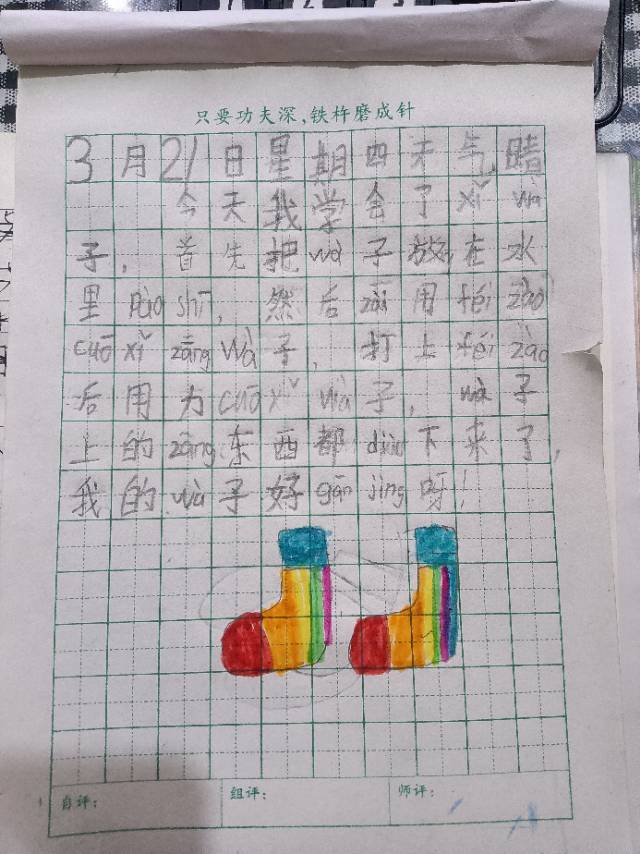 只要功夫深，铁杵磨成针
3月21日星期四天气晴
今天我学会了xǐ wà
子，首先把wà子放在水
里pào shī，然后zāi用féi zào
cuō xǐ zāng wà子，打上féi zào
后用力cuō xǐ wà子，wà子
上的zāng东西都diào下来了，
我的wà子好gān jìng呀！
自评： 组评： 师评：